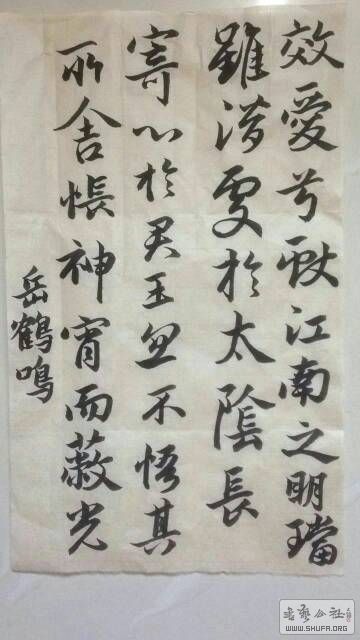 效愛兮獻江南之明璫
雖潛處於太陰長
寄心於君王忽不悟其
所舍悵神宵而蔽光
岳鶴鳴
書藝公社
WWW.SHUFA.ORG